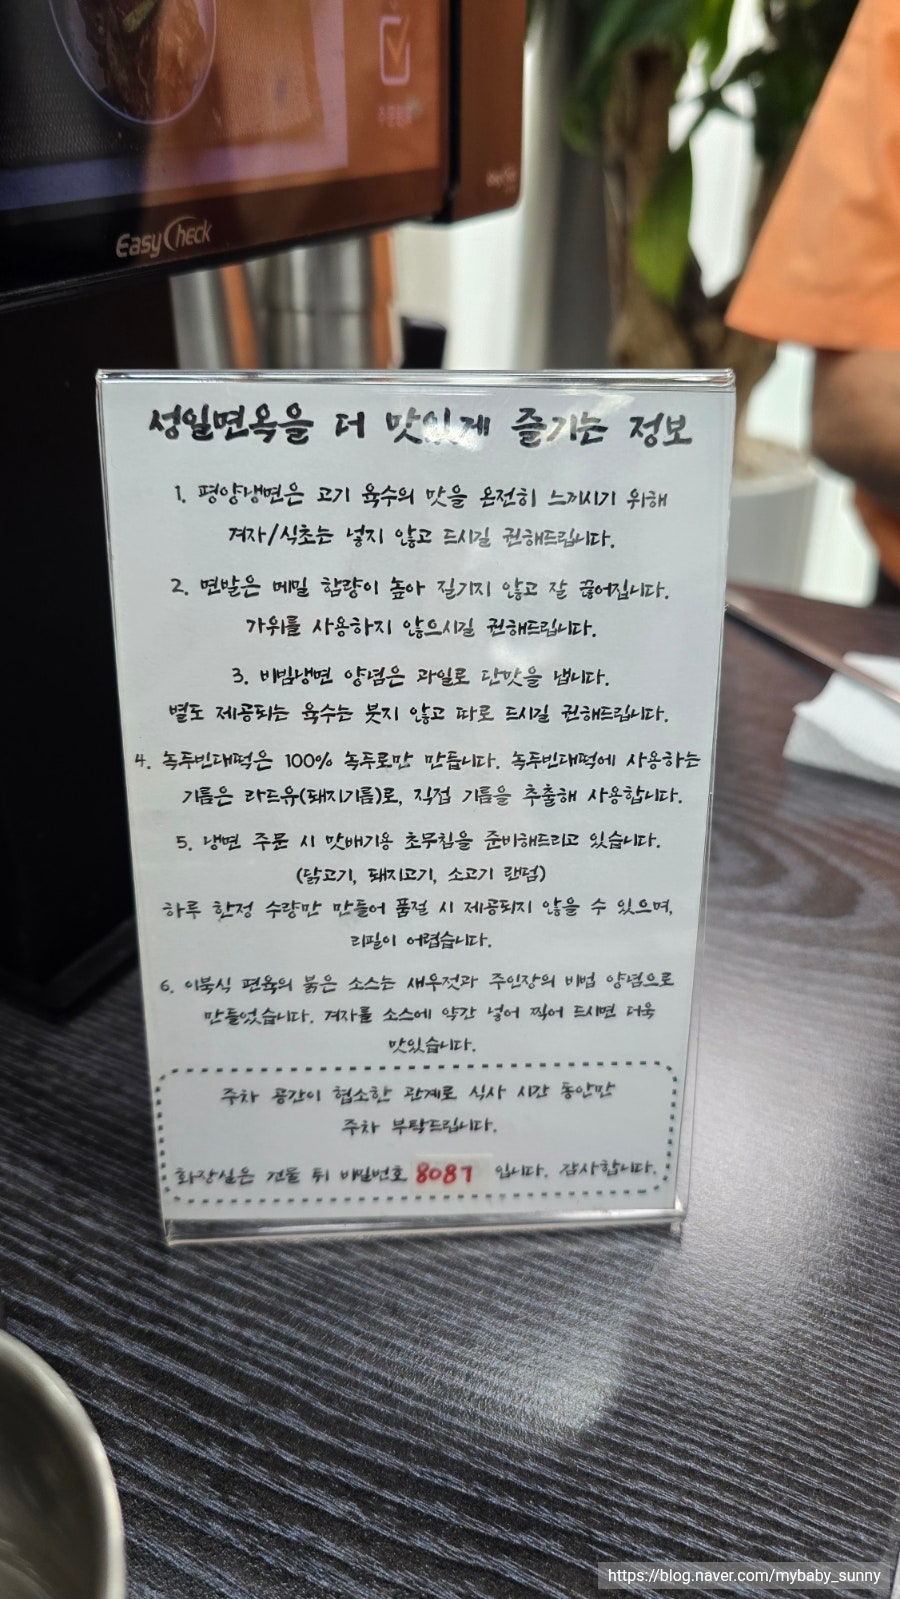 EasyCheck
성일면옥을 더 맛있게 즐기는 정보
1. 평양냉면은 고기 육수의 맛을 온전히 느끼시기 위해
겨자/식초는 넣지 않고 드시길 권해드립니다.
2. 면발은 메밀 함량이 높아 질기지 않고 잘 끊어집니다.
가위를 사용하지 않으시길 권해드립니다.
3. 비빔냉면 양념은 과일로 단맛을 냅니다.
별도 제공되는 육수는 붓지 않고 따로 드시길 권해드립니다.
4. 녹두빈대떡은 100% 녹두로만 만듭니다. 녹두빈대떡에 사용하는
기름은 라드유(돼지기름)로, 직접 기름을 추출해 사용합니다.
5. 냉면 주문 시 맛배기용 초무침을 준비해드리고 있습니다.
(닭고기, 돼지고기, 소고기 랜덤)
하루 한정 수량만 만들어 품절 시 제공되지 않을 수 있으며,
리필이 어렵습니다.
6. 이북식 편육의 붉은 소스는 새우젓과 주인장의 비법 양념으로
만들었습니다. 겨자를 소스에 약간 넣어 찍어 드시면 더욱
맛있습니다.
주차 공간이 협소한 관계로 식사 시간 동안만
주차 부탁드립니다.
화장실은 건물 뒤 비밀번호 8087 입니다. 감사합니다.
https://blog.naver.com/mybaby_sunny